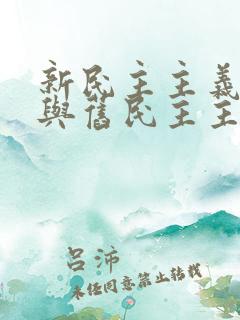 新民主主義
與舊民主主
呂沛
未經同意禁止轉載